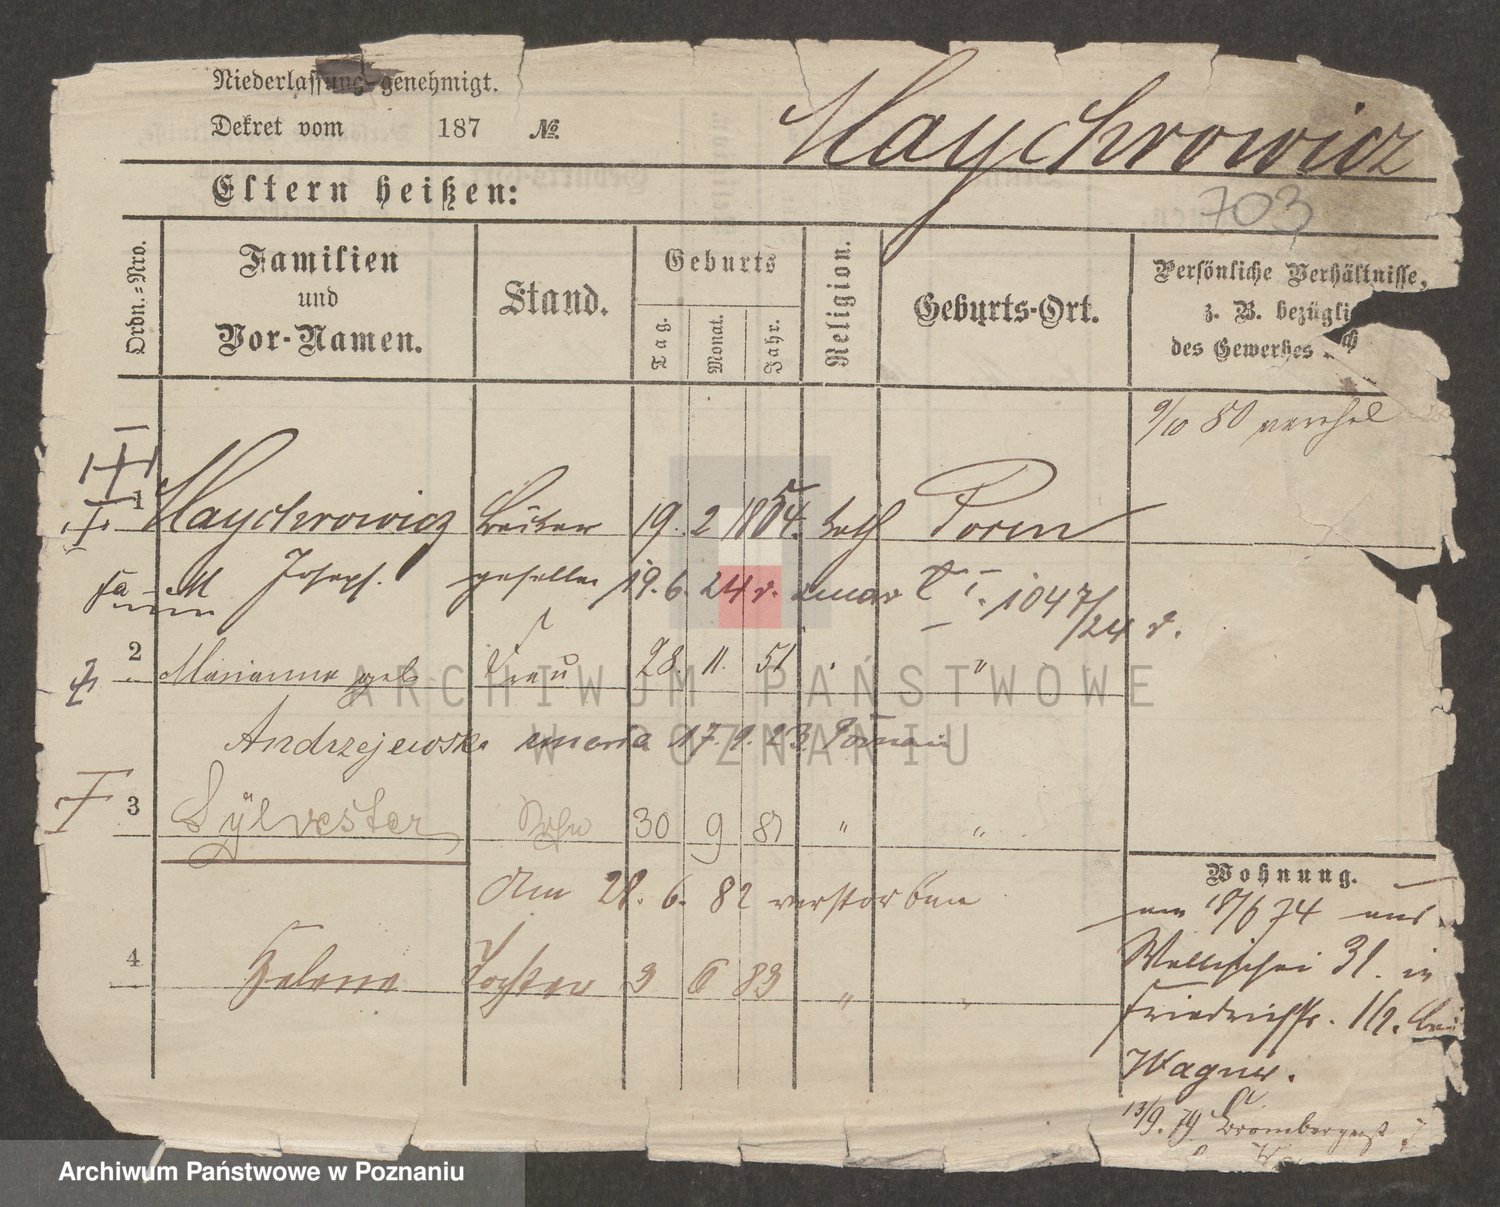 Niederlassung genehmigt.
Dekret vom 187 №
Maychrowicz
Eltern heißen:
703
Ordn.-Nro.
Familien
und
Vor-Namen.
Stand.
Geburts
Tag.
Monat.
Jahr.
Religion.
Geburts-Ort.
Persönliche Verhältnisse,
z. B. bezügli
des Gewerbes
9/10 80
1 Maychrowicz 19. 2 1854. kath Posen
Joseph. geselle 19. 6. 24 v. T. I. 1047/24 v.
2 Marianna geb Frau 28. 11. 51 "
Andrzejewska 17. 9. 23
3 Sylvester Sohn 30 9 81 " "
Am 28. 6. 82 verstorben
4 Helena Tochter 3 6 83 " "
Wohnung.
am 18/6 74 aus
Wallischei 31. in
Friedrichstr. bei
Wagner.
13/9. 79 Brombergerst
ARCHIWUM PAŃSTWOWE
W POZNANIU
Archiwum Państwowe w Poznaniu